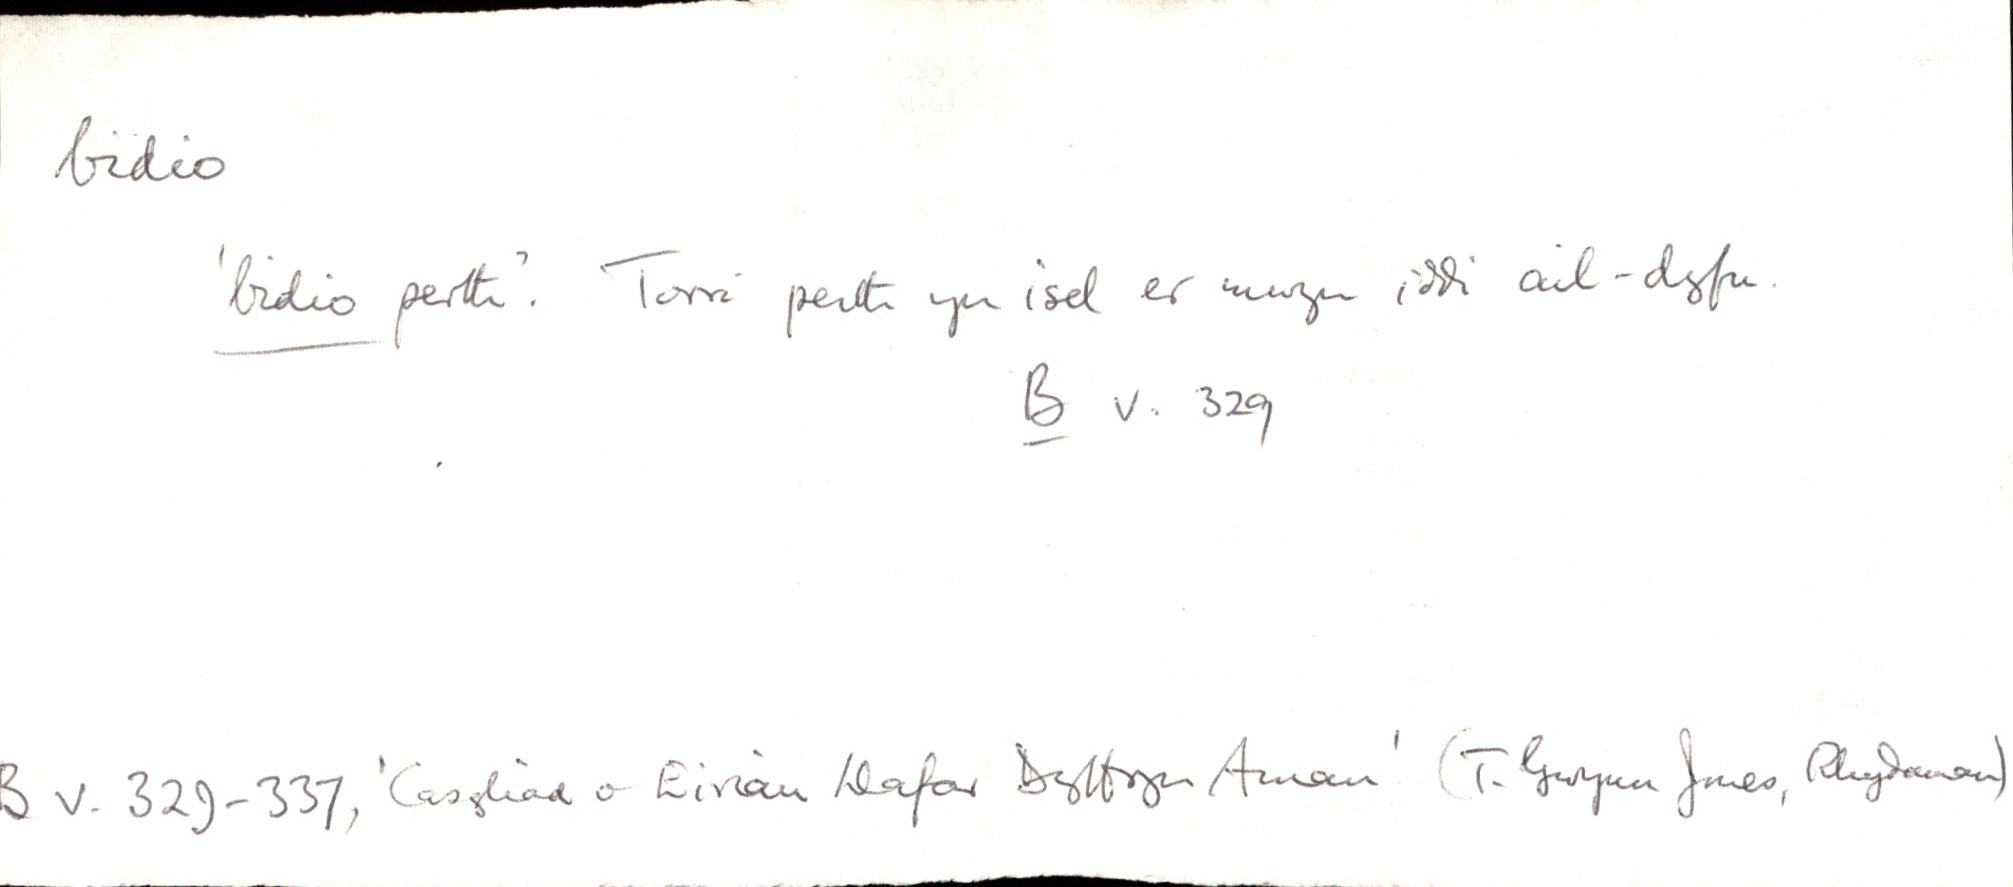 bidio
'bidio perth'. Torri perth yn isel er mwyn iddi ail-dyfu.
B v. 329
B v. 329-337, 'Casgliad o Eiriau Llafar Dyffryn Aman' (T. Gwynn Jones, Rhydaman)